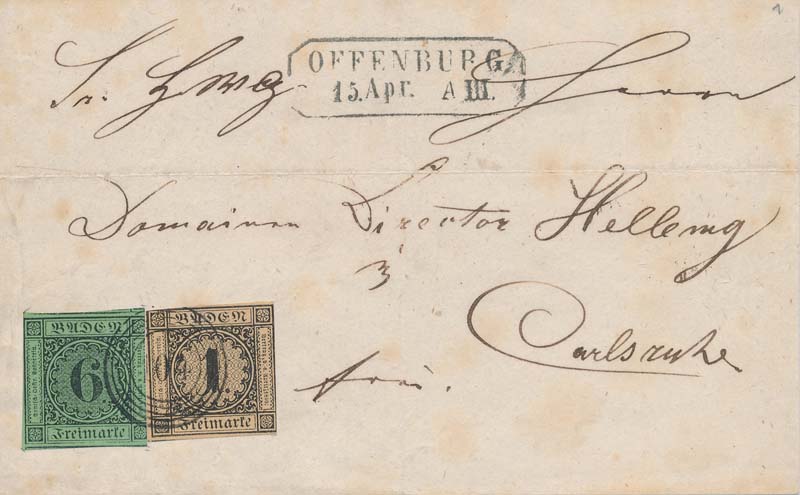 OFFENBURG
15. Apr. A III.
Sr. Hwg. Herrn
Domainen Director Hellemg
Carlsruhe
frei.
BADEN
6
Freimarke
BADEN
1
Freimarke